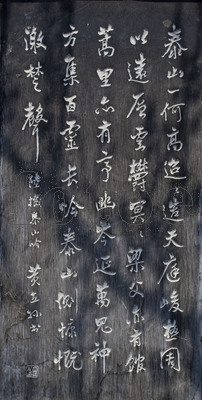 泰山一何高迢〻造天庭峻極周
以遠層雲鬱冥〻梁父亦有館
蒿里亦有亭幽岑延萬鬼神
方集百靈長吟泰山側慷慨
激楚聲
陸機泰山吟 黃立書